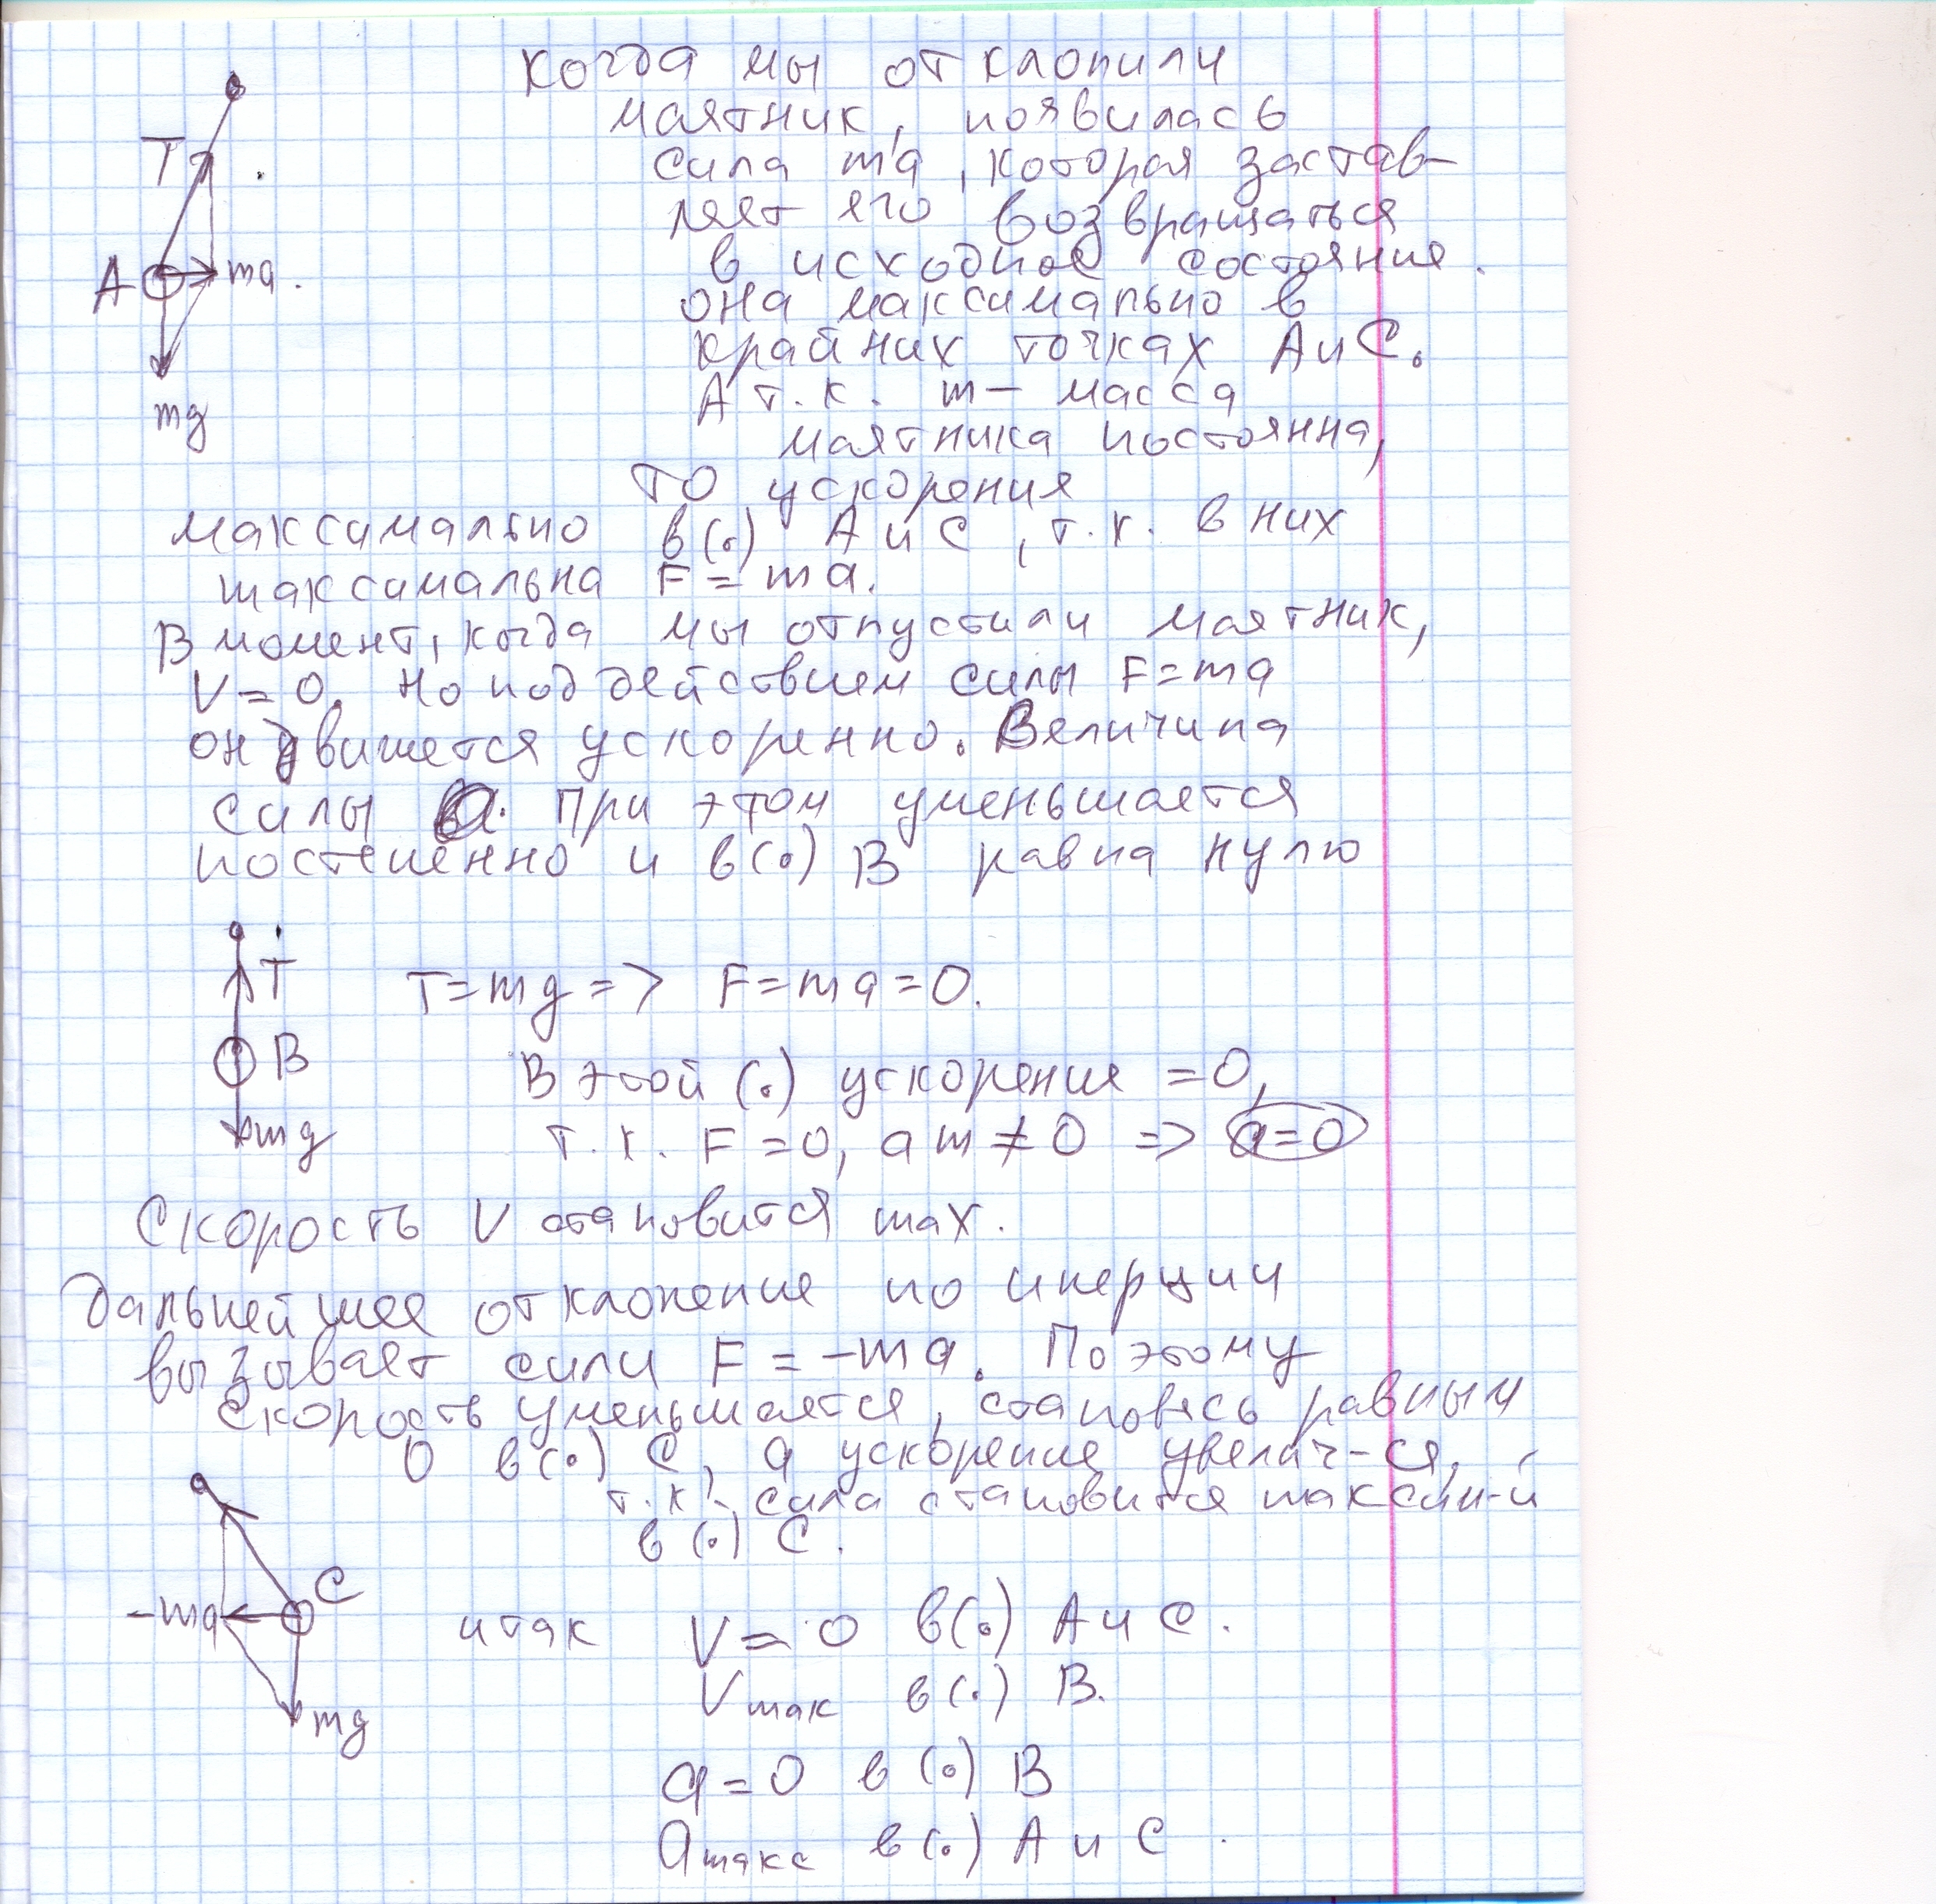 когда мы отклонили
маятник, появилась
T
сила ma, которая застав-
ляет его возвращаться
A
ma.
в исходное состояние.
она максимально в
крайних точках A и C.
А т.к. m – масса
mg
маятника постоянна,
то ускорения
максимально в(•) A и C, т.к. в них
максимальна F = ma.
В момент, когда мы отпустили маятник,
V = 0. Но под действием силы F = ma
он движется ускоренно. Величина
силы при этом уменьшается
постепенно и в(•) B равна нулю
T
T = mg => F = ma = 0.
B
В этой (•) ускорение = 0,
mg
т.к. F = 0, а m ≠ 0 => a = 0
Скорость V становится max.
Дальнейшее отклонение по инерции
вызывает силы F = -ma. Поэтому
скорость уменьшается, становясь равным
0 в(•) C, а ускорение увелич-ся,
т.к. сила становится максим-й
в(•) C.
C
-ma
итак V = 0 в(•) A и C.
Vмак в(•) B.
mg
a = 0 в(•) B
aмакс в(•) A и C.